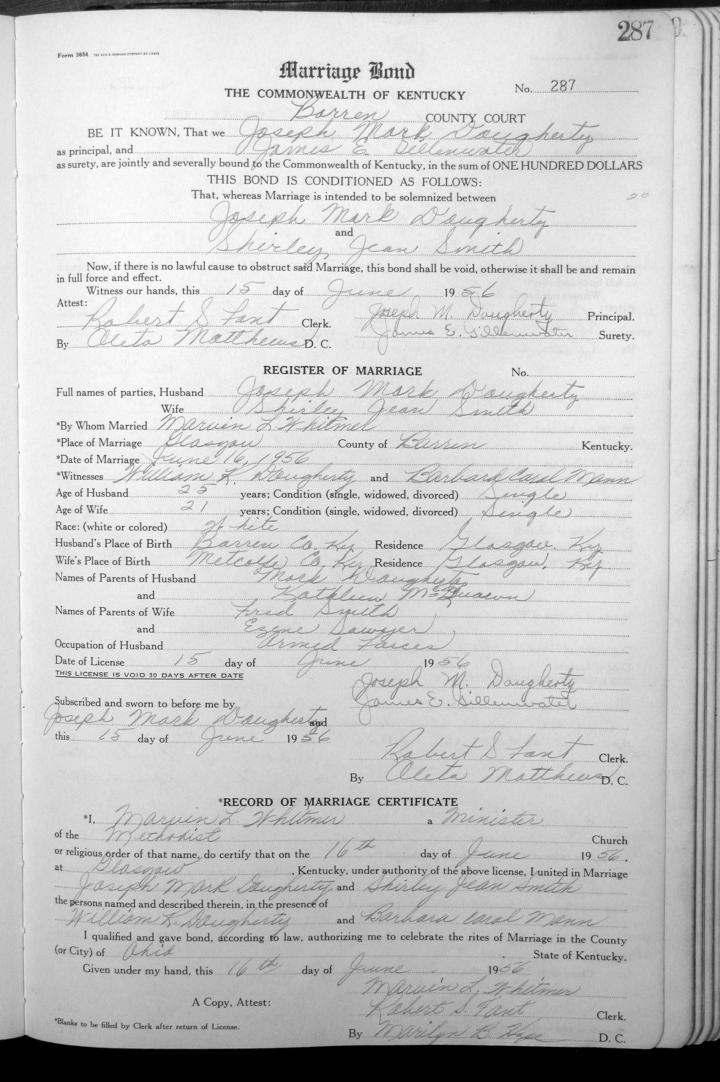 287
Form 365A
Marriage Bond
THE COMMONWEALTH OF KENTUCKY No. 287
Barren COUNTY COURT
BE IT KNOWN, That we Joseph Mark Daugherty
as principal, and James E. Dillenwater
as surety, are jointly and severally bound to the Commonwealth of Kentucky, in the sum of ONE HUNDRED DOLLARS
THIS BOND IS CONDITIONED AS FOLLOWS:
That, whereas Marriage is intended to be solemnized between
Joseph Mark Daugherty
and
Shirley Jean Smith
Now, if there is no lawful cause to obstruct said Marriage, this bond shall be void, otherwise it shall be and remain
in full force and effect.
Witness our hands, this 15 day of June 1956
Attest: Joseph M. Daugherty Principal.
Robert S Fant Clerk.
James E. Dillenwater Surety.
By Oleta Matthews D. C.
REGISTER OF MARRIAGE No.
Full names of parties, Husband Joseph Mark Daugherty
Wife Shirley Jean Smith
*By Whom Married Marvin L Whitmer
*Place of Marriage Glasgow County of Barren Kentucky.
*Date of Marriage June 16, 1956
*Witnesses William K. Daugherty and Barbara Carol Mann
Age of Husband 25 years; Condition (single, widowed, divorced) Single
Age of Wife 21 years; Condition (single, widowed, divorced) Single
Race: (white or colored) White
Husband's Place of Birth Barren Co. Ky Residence Glasgow, Ky
Wife's Place of Birth Metcalfe Co, Ky Residence Glasgow, Ky
Names of Parents of Husband Mark Daugherty
and Kathleen
Names of Parents of Wife Fred Smith
and Ezene Sawyer
Occupation of Husband Armed Forces
Date of License 15 day of June 1956
THIS LICENSE IS VOID 30 DAYS AFTER DATE
Joseph M. Daugherty
James E. Dillenwater
Subscribed and sworn to before me by
Joseph Mark Daugherty and
this 15 day of June 1956
Robert S Fant Clerk.
By Oleta Matthews D. C.
*RECORD OF MARRIAGE CERTIFICATE
*I, Marvin L Whitmer a Minister
of the Methodist Church
or religious order of that name, do certify that on the 16th day of June 1956,
at Glasgow, Kentucky, under authority of the above license, I united in Marriage
Joseph Mark Daugherty and Shirley Jean Smith
the persons named and described therein, in the presence of
William K. Daugherty and Barbara Carol Mann
I qualified and gave bond, according to law, authorizing me to celebrate the rites of Marriage in the County
(or City) of Ohio State of Kentucky.
Given under my hand, this 16th day of June 1956
Marvin L. Whitmer
A Copy, Attest: Robert S. Fant Clerk.
*Blanks to be filled by Clerk after return of License.
By Marilyn B. D. C.